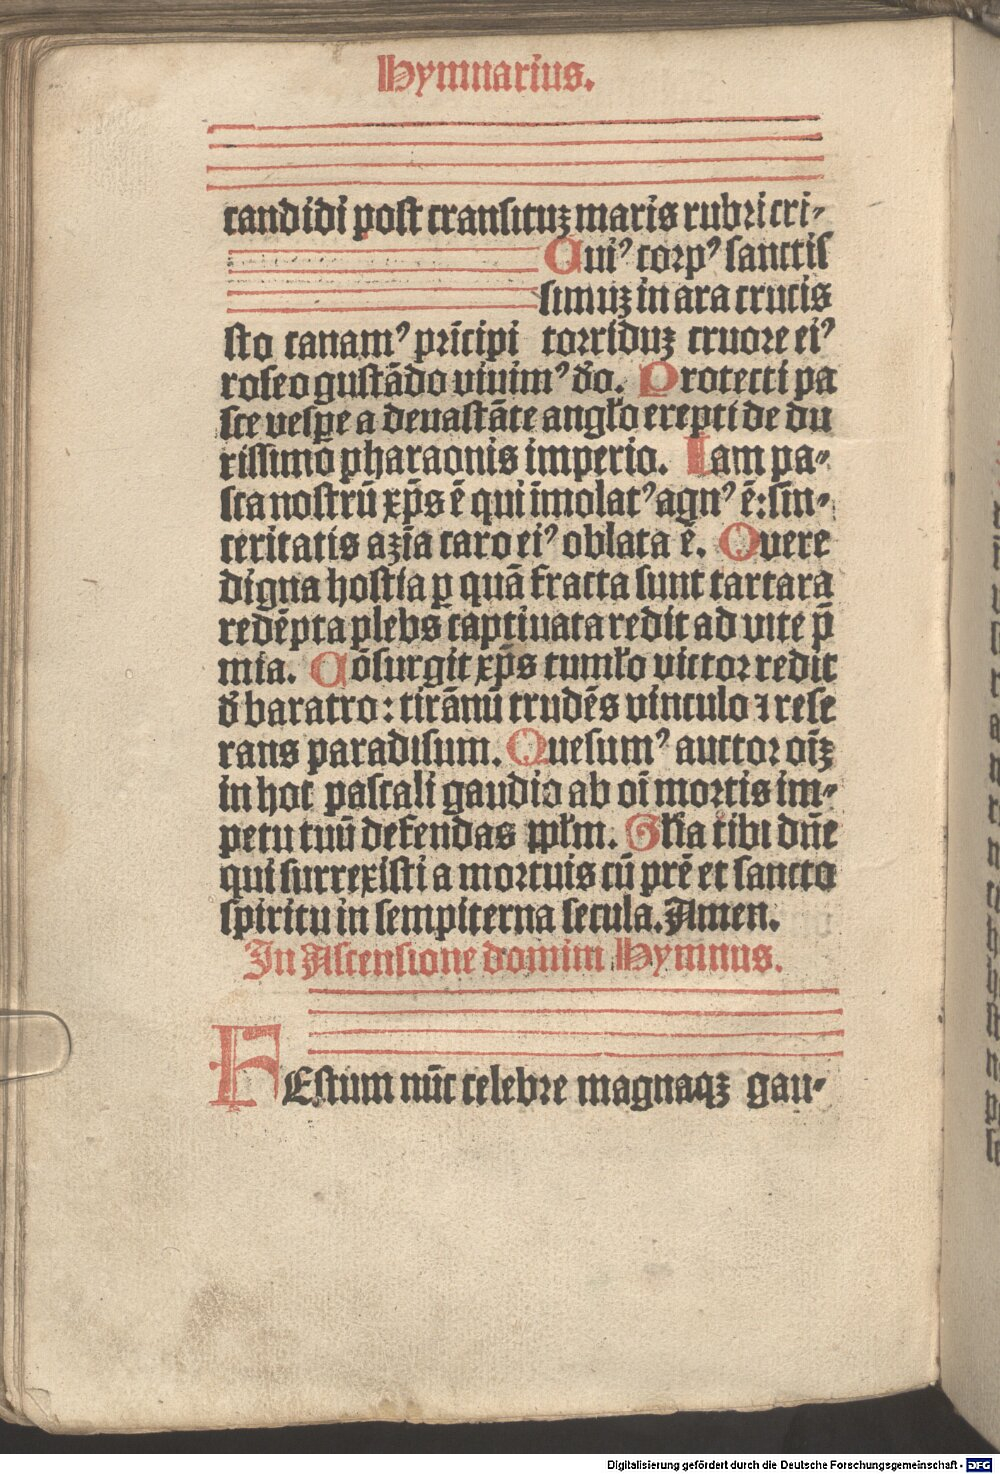 Hymnarius.
candidi post transituꝫ maris rubri cri⸗
Cuiꝰ corpꝰ sanctis
simuꝫ in ara crucis
sto canamꝰ prĩcipi torriduꝫ cruore eiꝰ
roseo gustãdo viuimꝰ đo. Protecti pa
sce vesꝑe a deuastãte angl̃o erepti de du
rissimo pharaonis imperio. Iam pa⸗
sca nostrũ xp̃s ẽ qui ĩmolatꝰ agnꝰ ẽ: sin⸗
ceritatis azĩa caro eiꝰ oblata ẽ. O vere
digna hostia ꝑ quã fracta sunt tartara
redẽpta plebs captiuata redit ad vite p̃
mia. Cõsurgit xp̃s tuml̃o victor redit
đ baratro: tirãnũ trudẽs vinculo ⁊ rese
rans paradisum. Quesumꝰ auctor oĩꝫ
in hoc pascali gaudio ab oĩ mortis im⸗
petu tuũ defendas ppl̃m. Gl̃ia tibi dñe
qui surrexisti a mortuis cũ pr̃e et sancto
spiritu in sempiterna secula. Amen.
In Ascensione domini Hymnus.
FEstum nũc celebre magnaqꝫ gau⸗
Digitalisierung gefördert durch die Deutsche Forschungsgemeinschaft - DFG